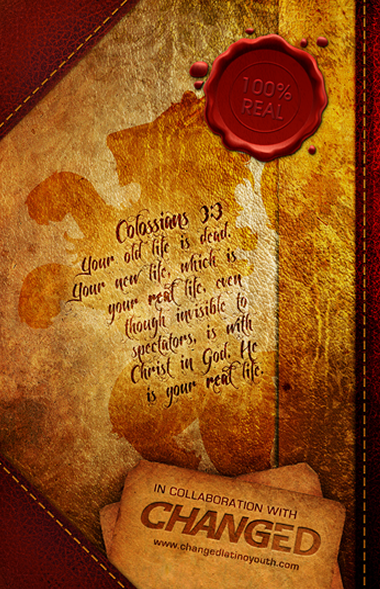 100%
REAL
Colossians 3:3
Your old life is dead.
Your new life, which is
your real life, even
though invisible to
spectators, is with
Christ in God. He
is your real life.
IN COLLABORATION WITH
CHANGED
www.changedlatinoyouth.com